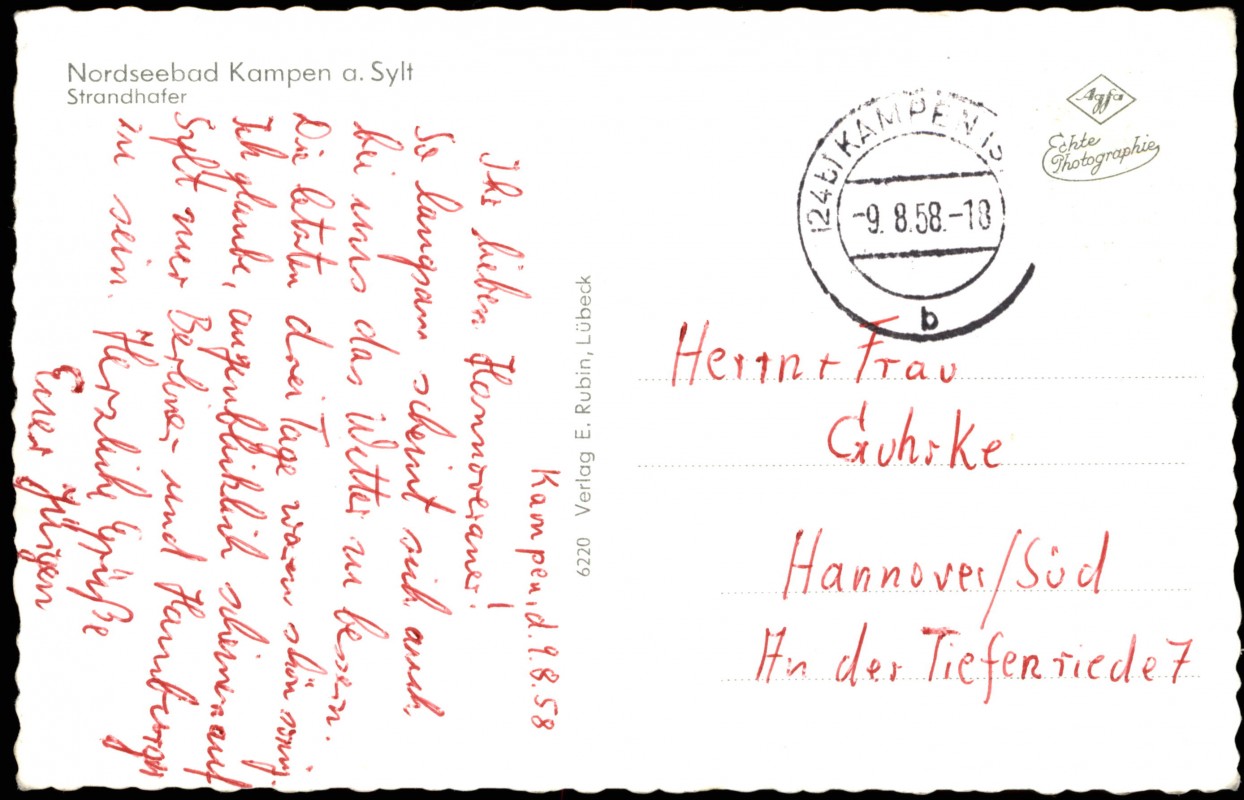 Nordseebad Kampen a. Sylt
Strandhafer
Kampen, d. 9.8.58
Ihr lieben Hannoveraner!
So langsam scheint sich auch
bei uns das Wetter zu bessern.
Die letzten drei Tage waren schön sonnig.
Ich glaube, augenblicklich scheinen auf
Sylt nur Berliner und Hamburger
zu sein. Herzliche Grüße
Euer Jürgen
6220 Verlag E. Rubin, Lübeck
(24b) KAMPEN (S
-9.8.58.-18
b
Agfa
Echte
Photographie
Herrn + Frau
Guhrke
Hannover/Süd
An der Tiefenriede 7